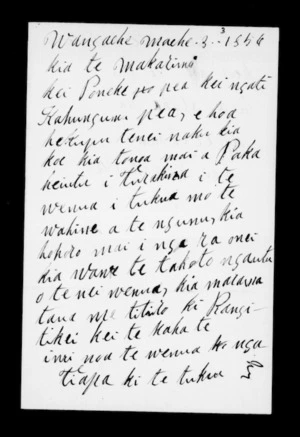 Wangaehu Maehe 3 - 1856
kia te Makarini
kei Poneke pea kei ngati
Kahungunu pea, e hoa
he kupu tenei naku kia
koe kia tonoa mai a Paka
heiutu i Turakina i te
wenua i tukua mo te
wahine a te ngunu, kia
hohoro mai i nga ra onei
kia wawe te takoto ngautu
o tenei wenua, kia
tana titiro ki Rangi-
tikei kei te kaha te
inoi noa te wenua nga
tiapa ki te tukua